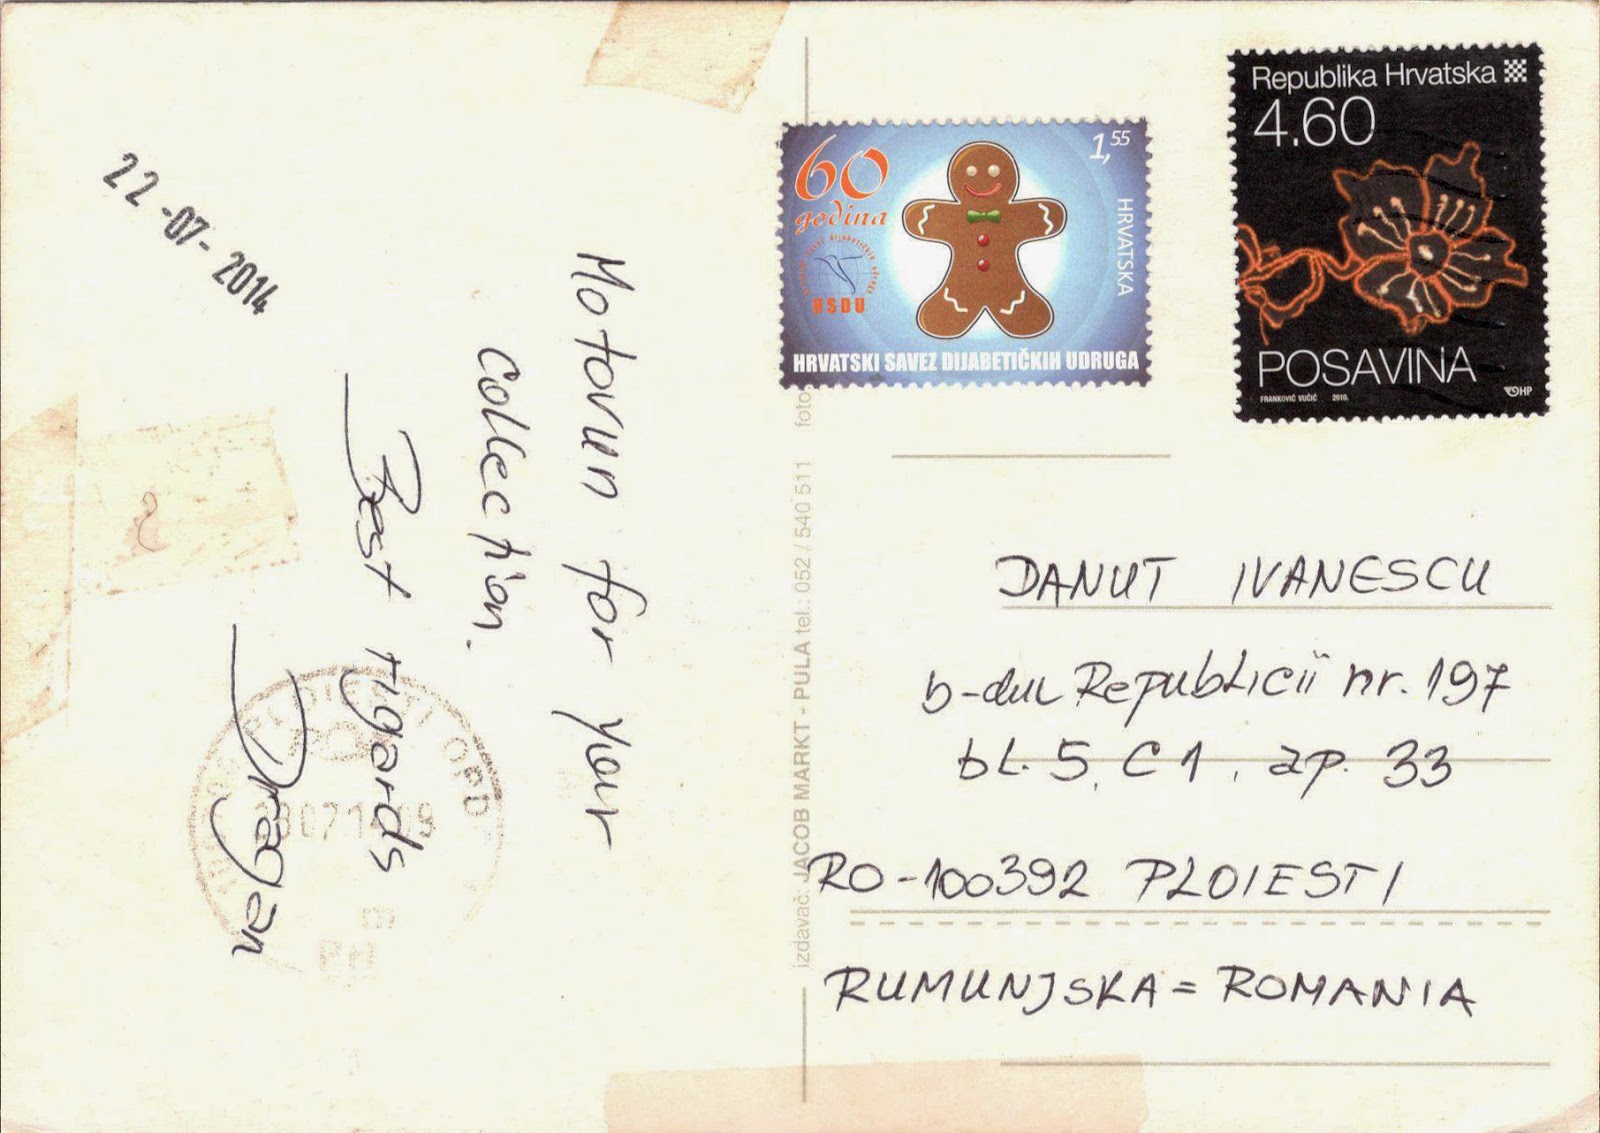 22-07-2014
Motovun for your
Collection.
Best rigards
Dragan
60
godina
HSDU
1,55
HRVATSKA
HRVATSKI SAVEZ DIJABETIČKIH UDRUGA
Republika Hrvatska
4.60
POSAVINA
FRANKOVIĆ VUČIĆ 2010.
HP
izdavač: JACOB MARKT - PULA tel.: 052 / 540 511 foto
DANUT IVANESCU
b-dul Republicii nr. 197
bl. 5, C1, ap. 33
RO-100392 PLOIESTI
RUMUNJSKA = ROMANIA
PLOIESTI